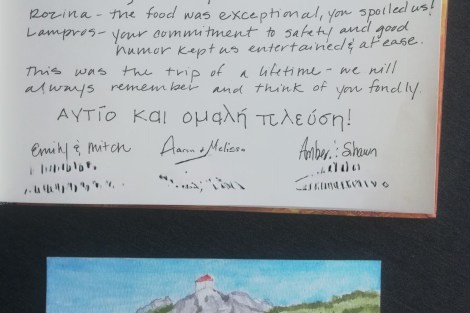 Rozina - the food was exceptional, you spoiled us!
Lampros - your commitment to safety and good
humor kept us entertained & at ease.
This was the trip of a lifetime - we will
always remember and think of you fondly.
Αντίο και ομαλή πλεύση!
Emily & Mitch Aaron & Melissa Amber & Shawn